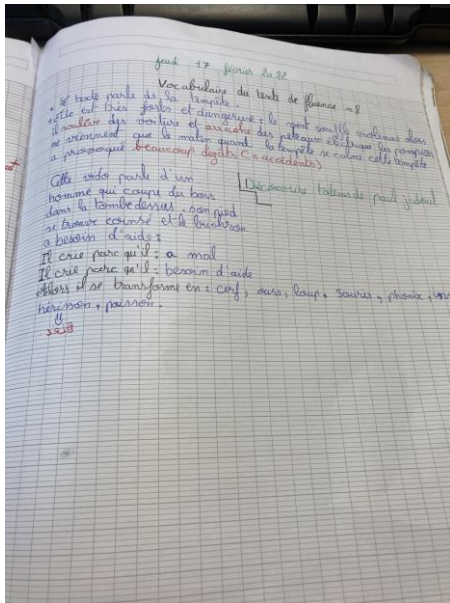 jeudi 17 février 2022
Vocabulaire du texte de fluence n8
texte parle de la tempête.
elle est très forte et dangereuse : le vent souffle violament alors
il soulève des voiture et arrache des poteaux éléctrique les pompiers
ne viennent que le matin quant la tempête se calme cette tempête
a provoqué beaucoup dégats (= accidents)
Cette vido parle d'un
homme qui coupe du bois
dans la tombe dessus. son pied
se trouve coinsé et le bucheron
a besoin d'aide :
Découverte totems de paul
Il crie parc qu'il : a mal
Il crie parc qu'il : besoin d'aide
Alors il se transforme en : cerf, ours, loup, souris, phoque,
hérisson, poisson.